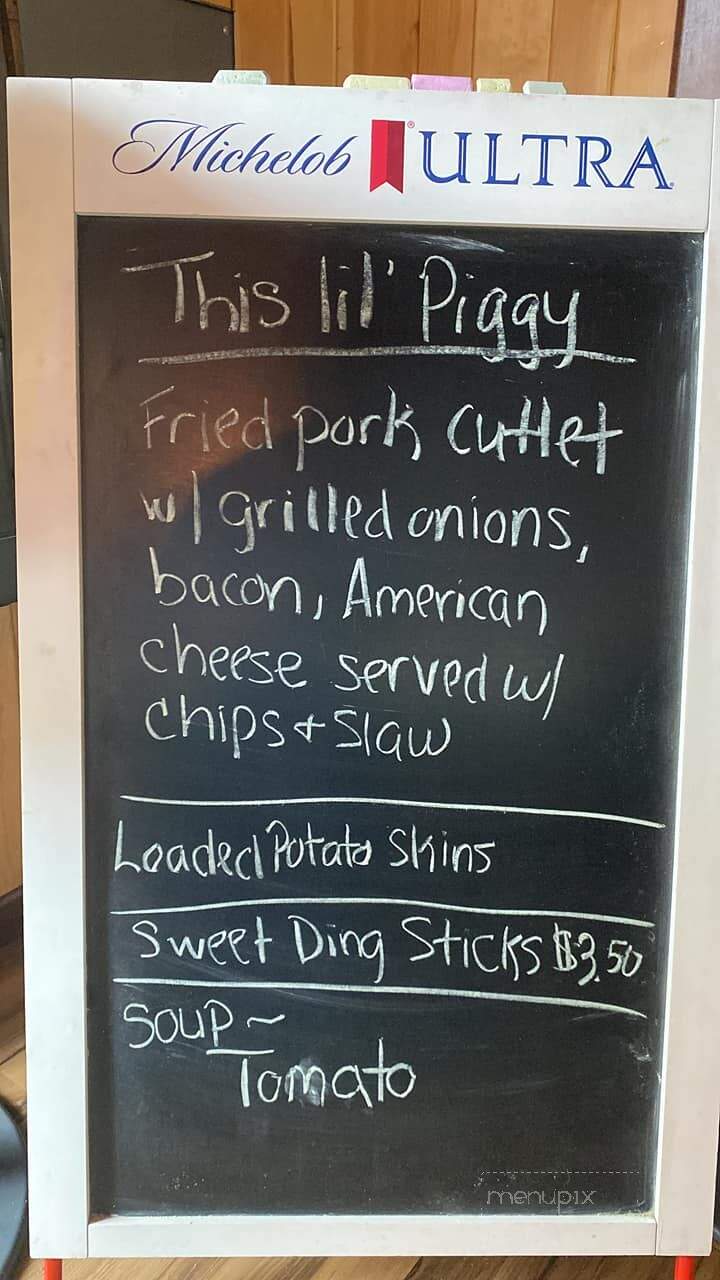 Michelob ULTRA
This lil' Piggy
Fried pork cuttlet
w/ grilled onions,
bacon, American
cheese served w/
chips + slaw
Loaded Potato Skins
Sweet Ding Sticks $3.50
Soup ~
Tomato
menupix